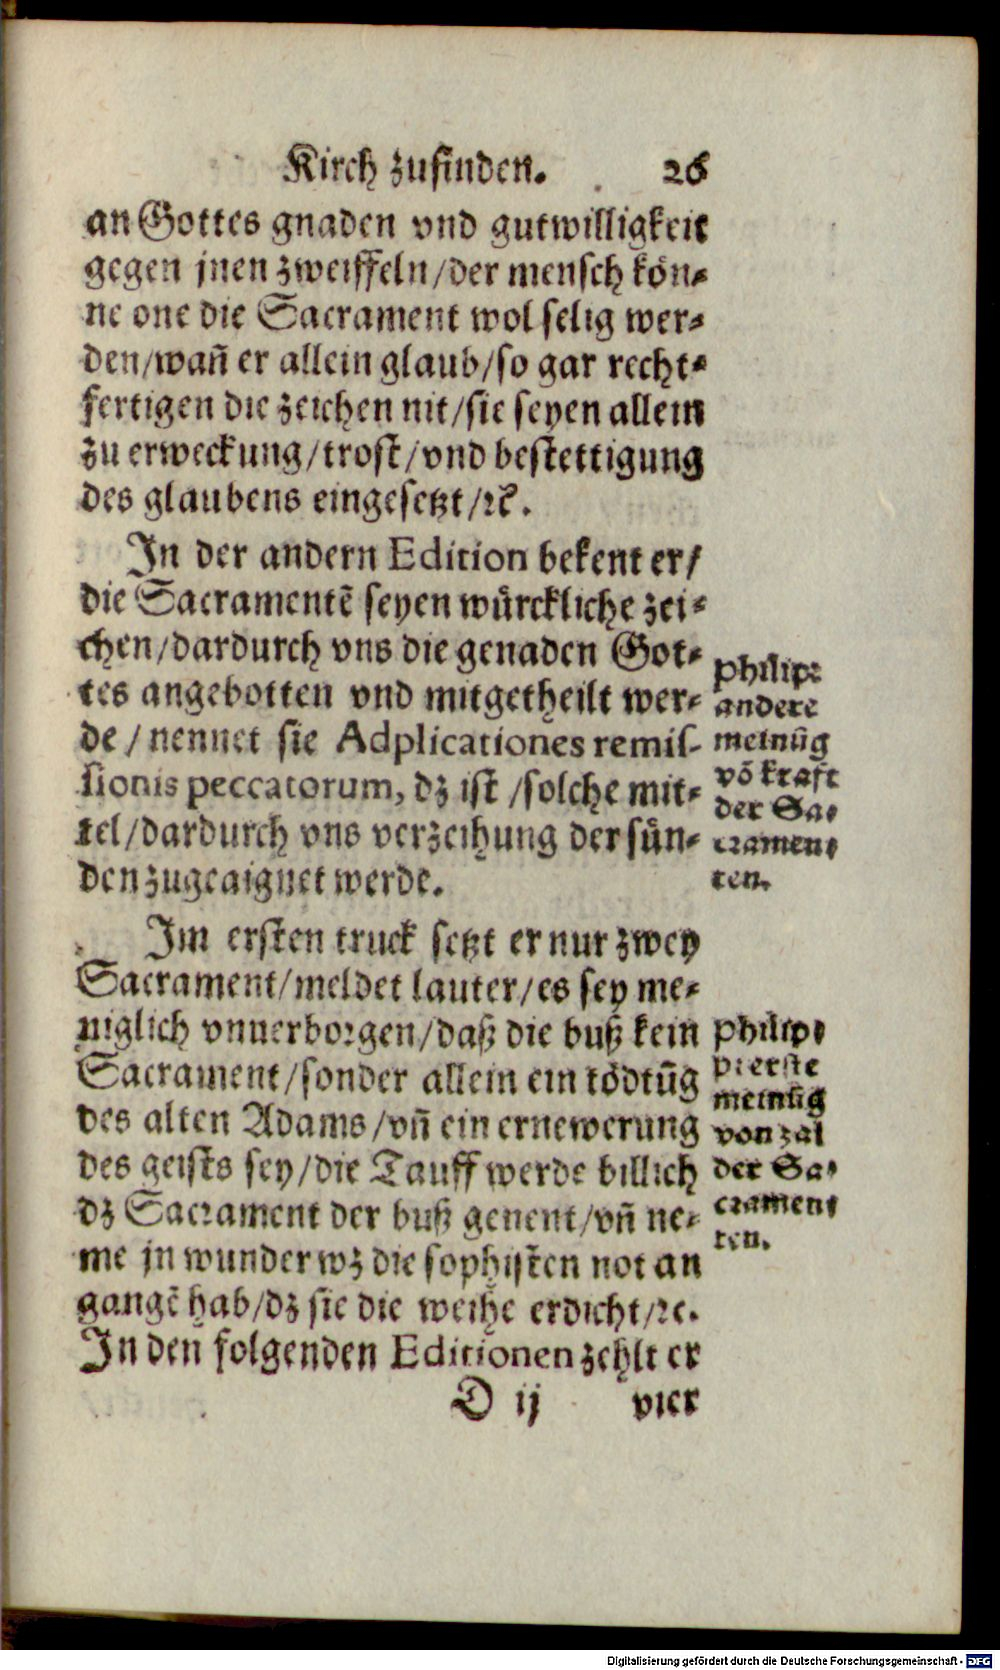 Kirch zufinden. 26
an Gottes gnaden vnd gutwilligkeit
gegen jnen zweiffeln/der mensch kön-
ne one die Sacrament wol selig wer-
den/wañ er allein glaub/so gar recht-
fertigen die zeichen nit/sie seyen allein
zu erweckung/trost/vnd bestettigung
des glaubens eingesetzt/ꝛc̃.
In der andern Edition bekent er/
die Sacramentẽ seyen würckliche zei-
chen/dardurch vns die genaden Got-
tes angebotten vnd mitgetheilt wer-
de/nennet sie Adplicationes remis-
sionis peccatorum, dz ist/solche mit-
tel/dardurch vns verzeihung der sün-
den zugeaignet werde.
Philip:
andere
meinũg
võ krafft
der Sa-
cramen-
ten.
Im ersten truck setzt er nur zwey
Sacrament/meldet lauter/es sey me-
niglich vnuerborgen/daß die buß kein
Sacrament/sonder allein ein tödtũg
des alten Adams/vñ ein ernewerung
des geists sey/die Tauff werde billich
dz Sacrament der buß genent/vñ ne-
me jn wunder wz die sophisten not an
gangẽ hab/dz sie die weihe erdicht/ꝛc.
In den folgenden Editionen zehlt er
Philip-
pi erste
meinũg
von zal
der Sa-
cramen-
ten.
D ij vier
Digitalisierung gefördert durch die Deutsche Forschungsgemeinschaft - DFG